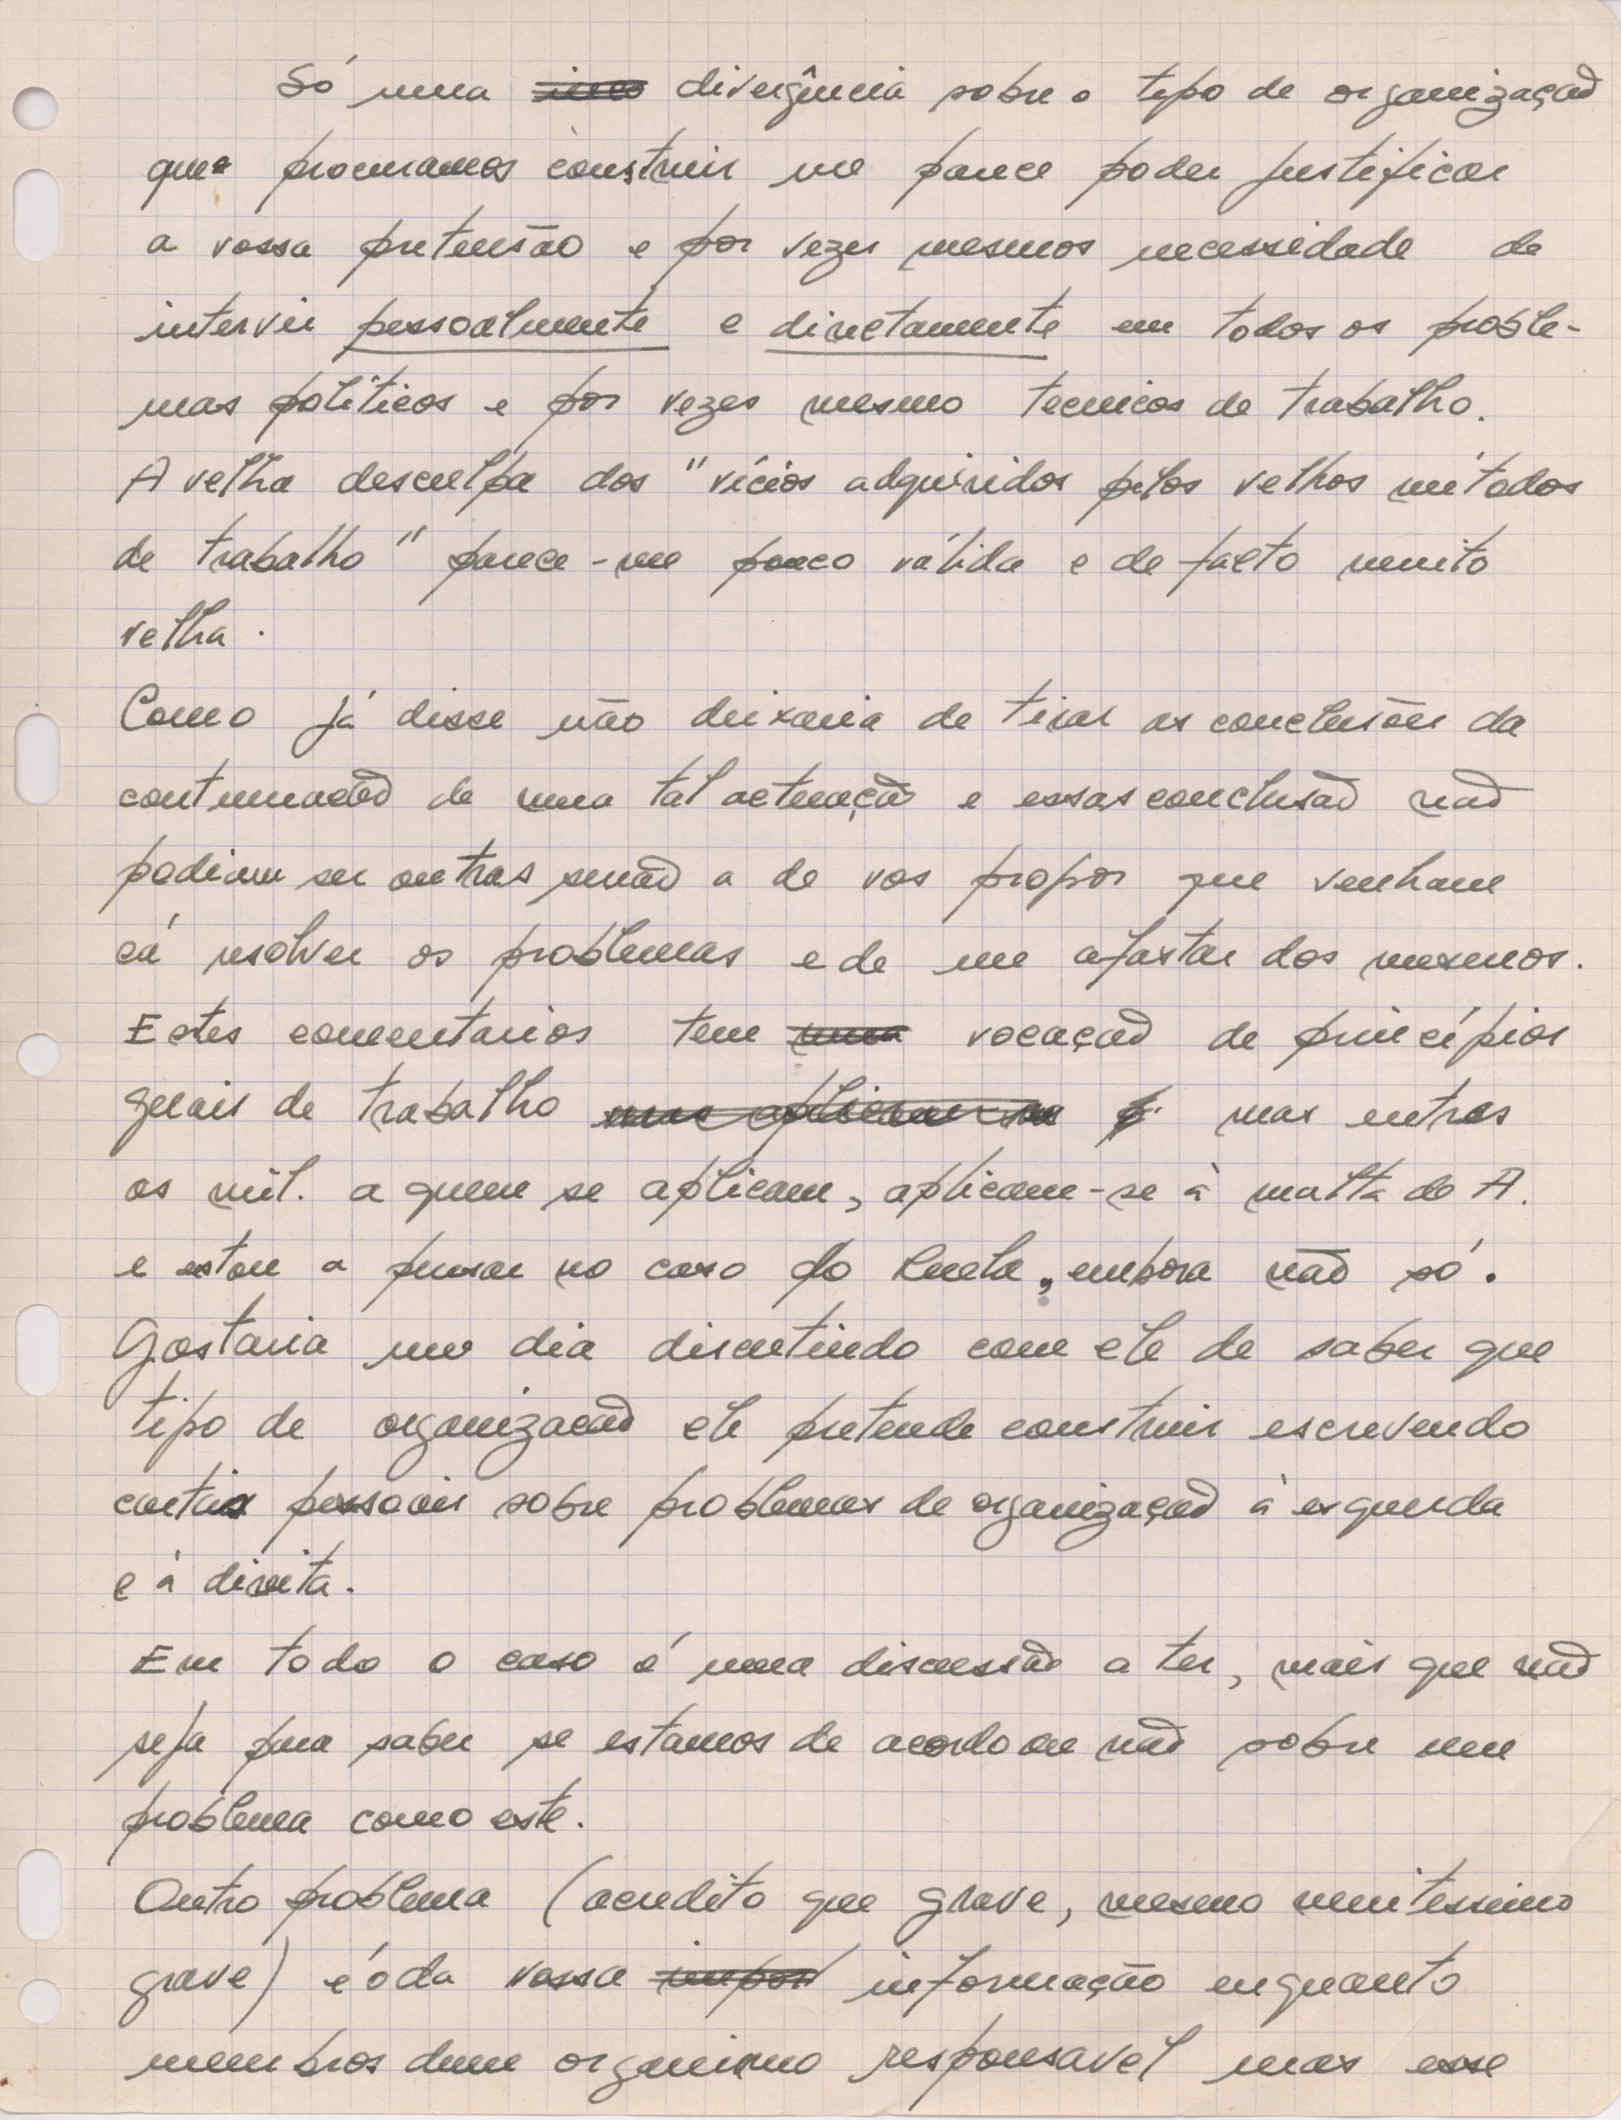 Só uma divergência sobre o tipo de organização
que procuramos construir me parece poder justificar
a vossa pretensão e por vezes mesmos necessidade de
intervir pessoalmente e directamente em todos os proble-
mas políticos e por vezes mesmo tecnicos de trabalho.
A velha desculpa dos "vícios adquiridos pelos velhos métodos
de trabalho" parece-me pouco válida e de facto muito
velha.
Como já disse não deixaria de tirar as conclusões da
continuação de uma tal actuação e essas conclusão não
podiam ser outras senão a de vos propor que venham
cá resolver os problemas e de me afastar dos mesmos.
Estes comentarios tem vocação de princípios
gerais de trabalho mas entres
os mil. a quem se aplicam, aplicam-se à malta do A.
e estou a pensar no caso do , embora não só.
Gostaria um dia discutindo com ele de saber que
tipo de organizacão ele pretende construir escrevendo
cartas pessoais sobre problemas de organização à esquerda
e à direita.
Em todo o caso é uma discussão a ter, mais que não
seja para saber se estamos de acordo ou não sobre um
problema como este.
Outro problema (acredito que grave, mesmo muitessimo
grave) é o da vossa informação enquanto
membros dum organismo responsavel mas esse